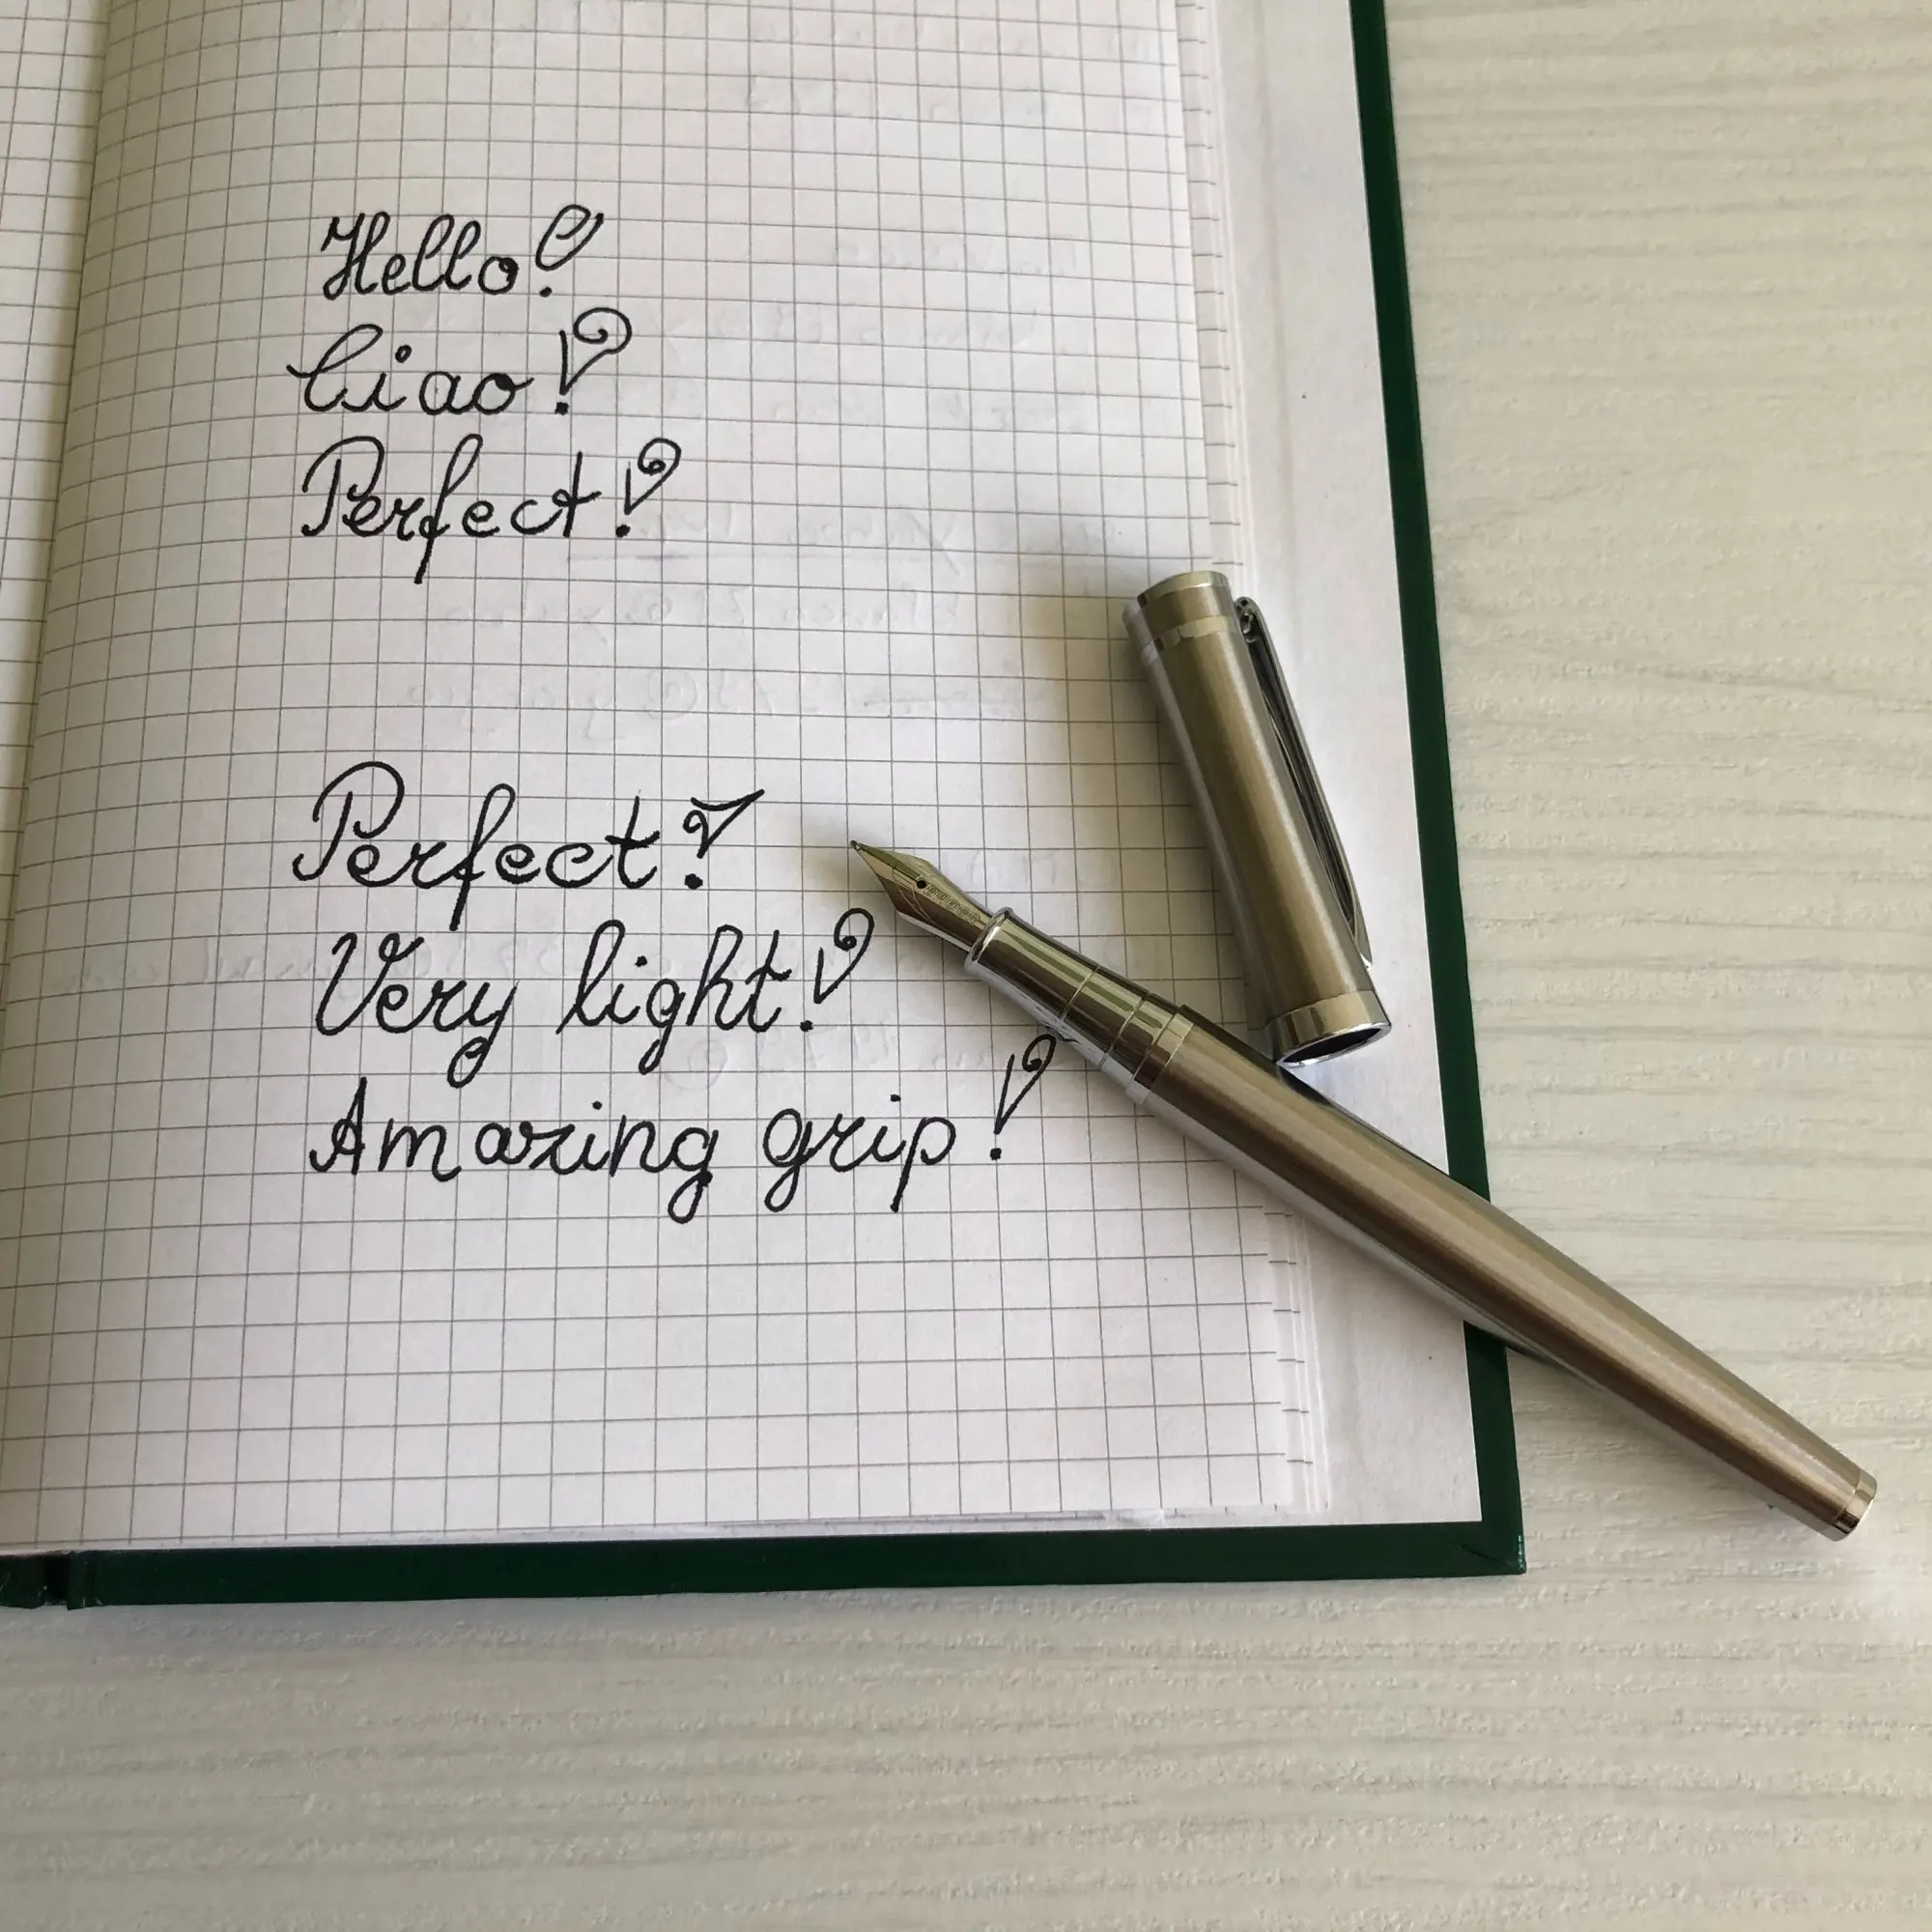 Hello!
Ciao!
Perfect!
Perfect!
Very light!
Amazing grip!